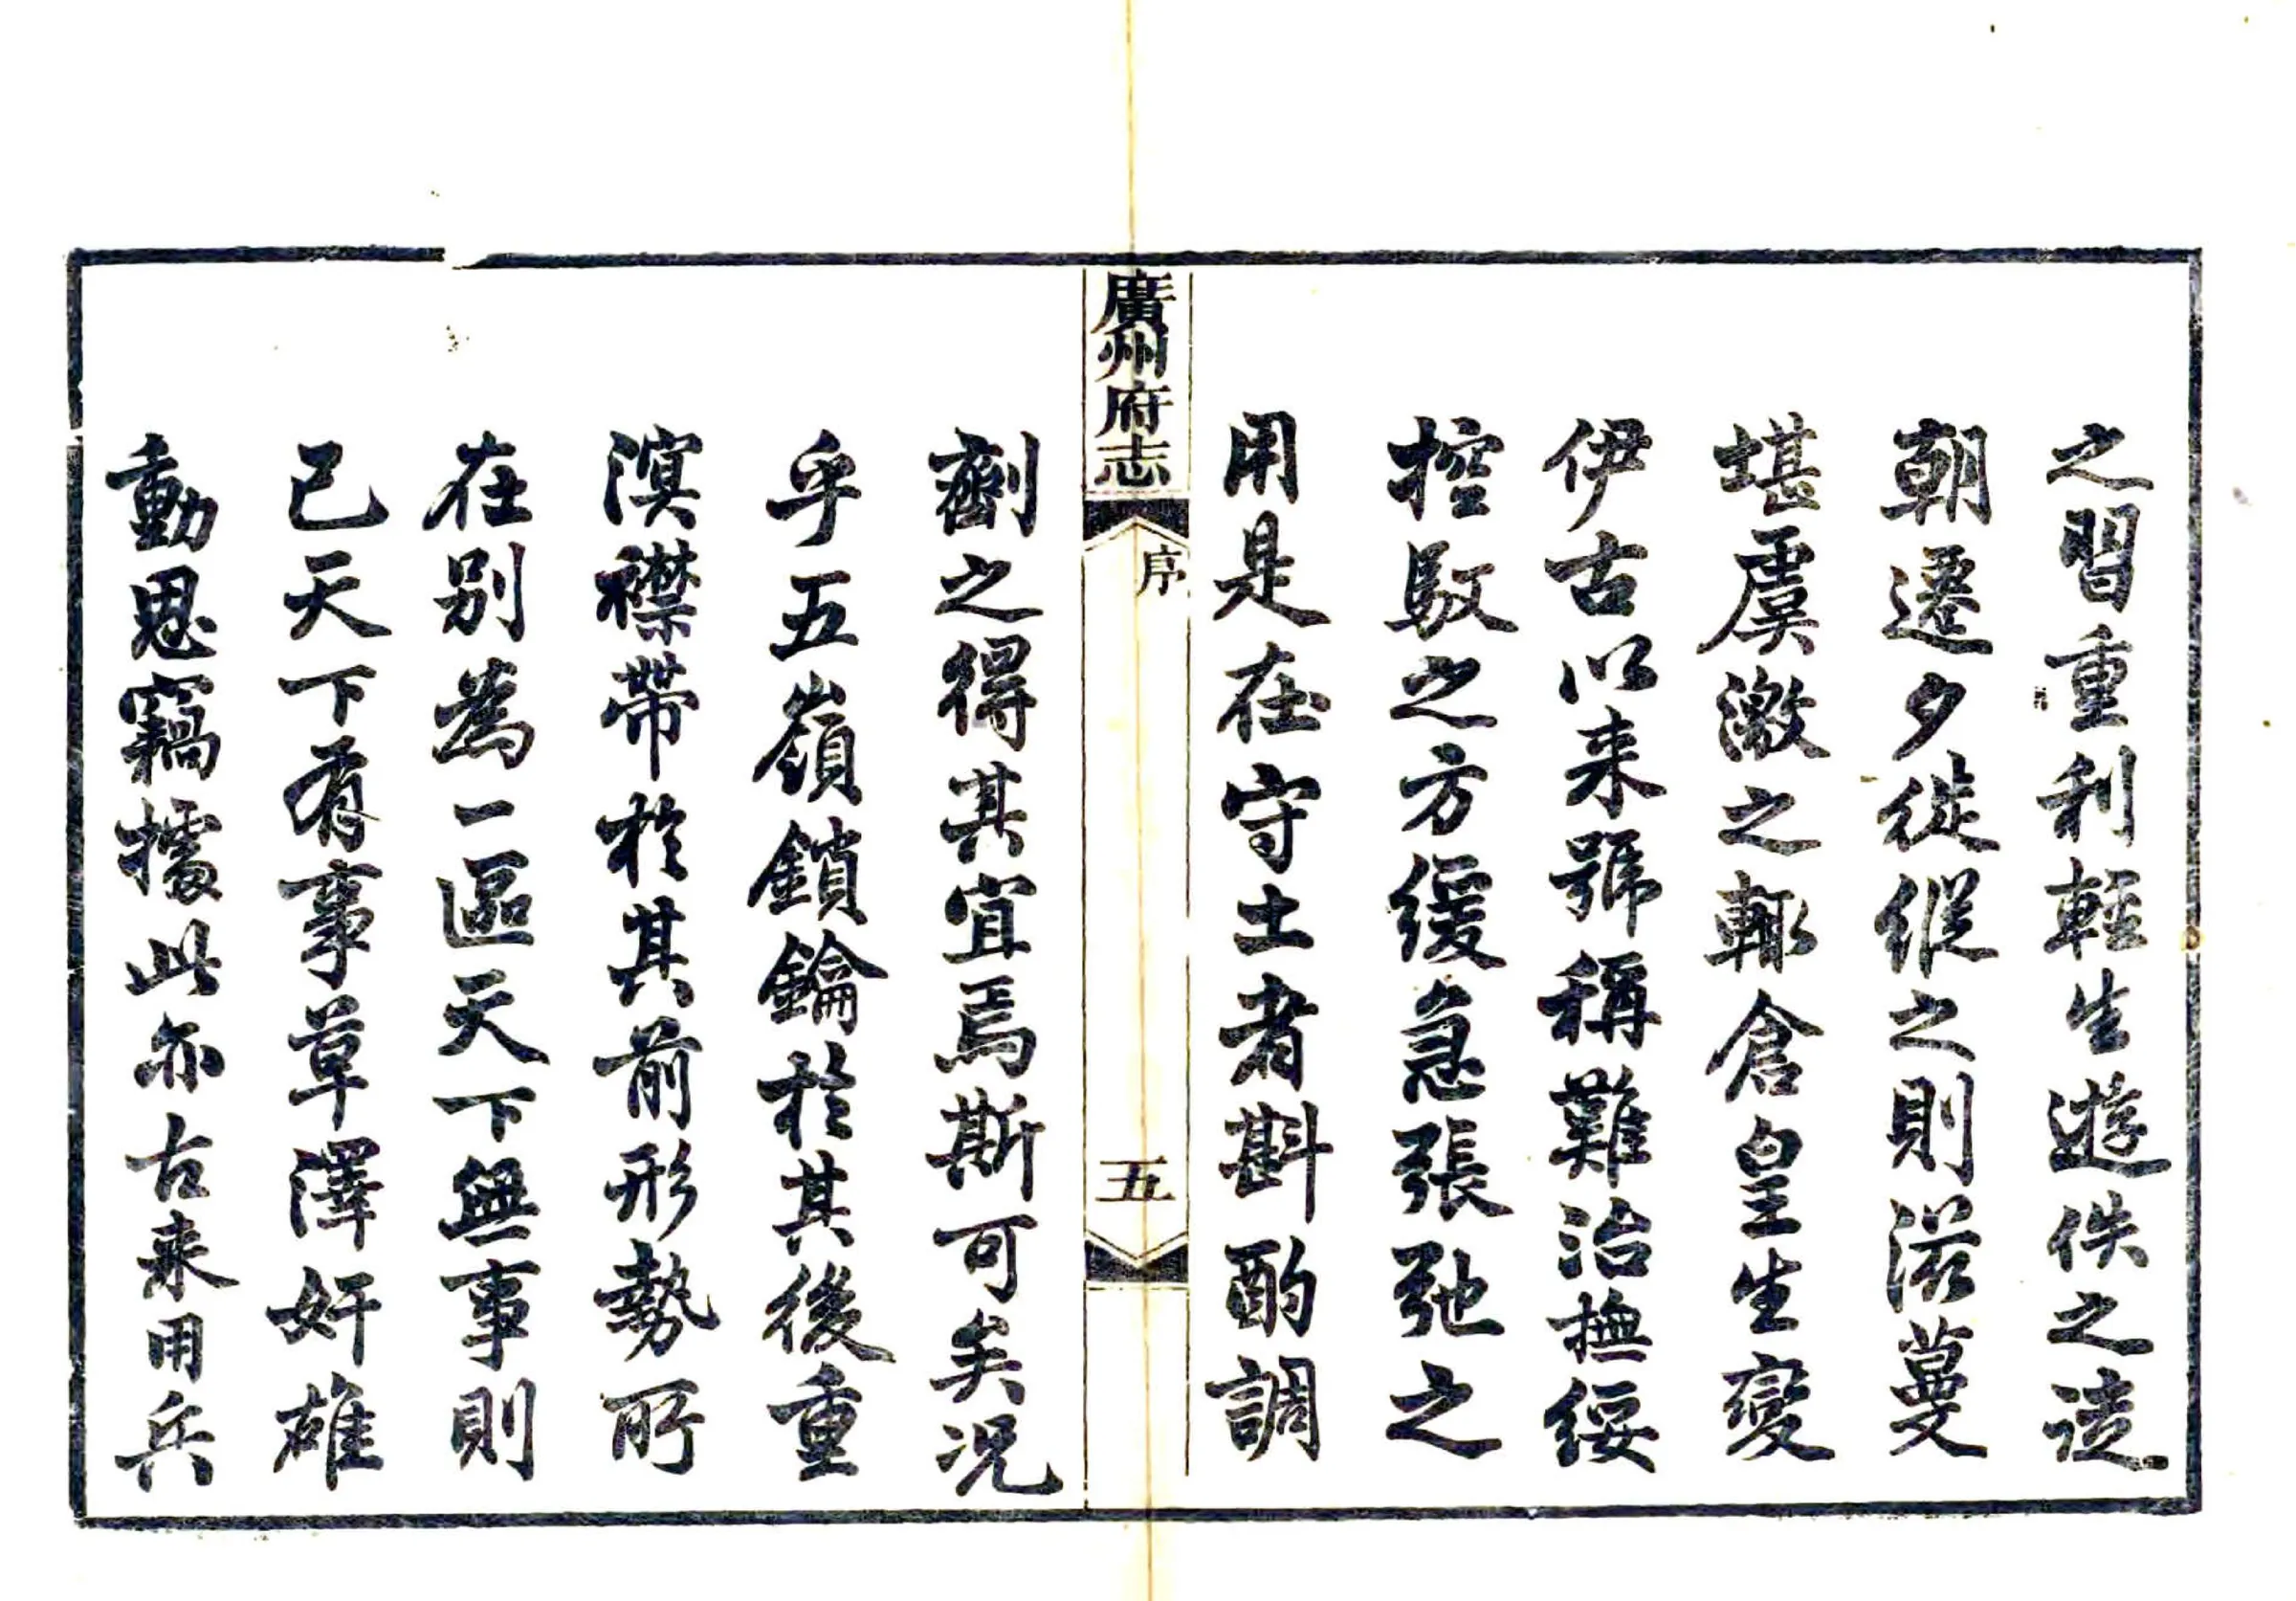 之習重利輕生遊佚之徒
朝遷夕徙縱之則滋蔓
堪虞激之輒倉皇生變
伊古以来號稱難治撫綏
控馭之方緩急張弛之
用是在守土者斟酌調
廣州府志
序
五
劑之得其宜焉斯可矣况
乎五嶺鎖鑰於其後重
溟襟帶於其前形勢所
在别為一區天下無事則
已天下有事草澤奸雄
動思竊據此亦古来用兵